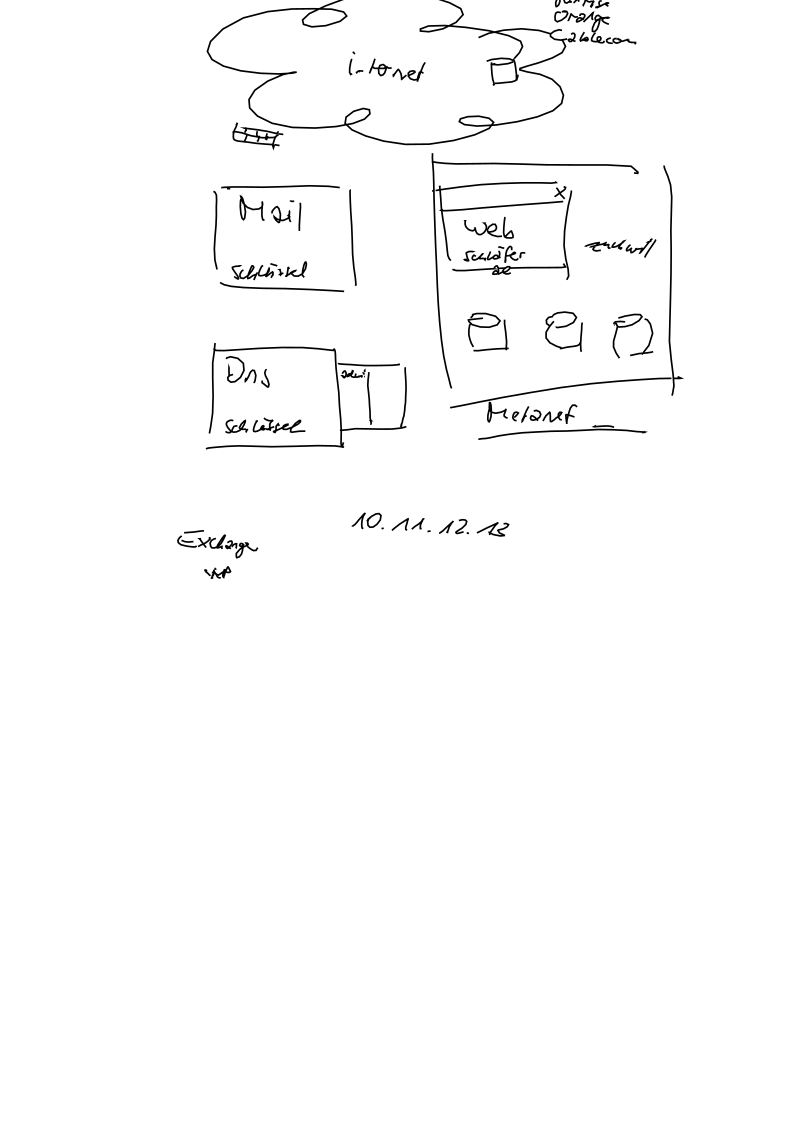 Orange
Cablecom
internet
Mail
schlüssel
x
Web
schläfer
Dns
schlüssel
Metanet
10.11.12.13
Exchange